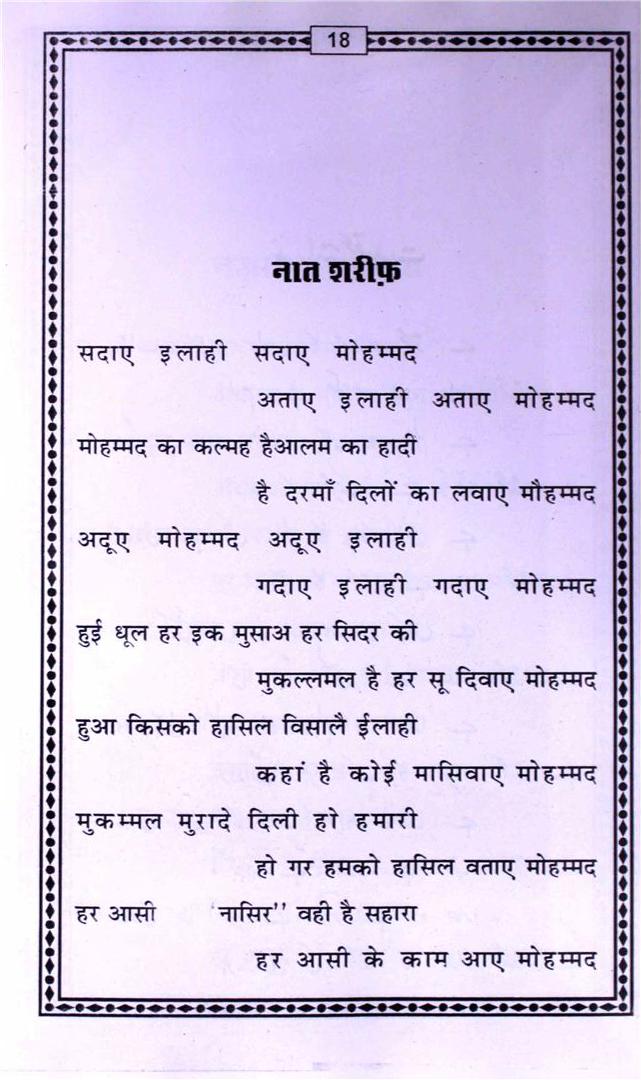 18
नात शरीफ़
सदाए इलाही सदाए मोहम्मद
अताए इलाही अताए मोहम्मद
मोहम्मद का कल्मह हैआलम का हादी
है दरमाँ दिलों का लवाए मौहम्मद
अदूए मोहम्मद अदूए इलाही
गदाए इलाही गदाए मोहम्मद
हुई धूल हर इक मुसाअ हर सिदर की
मुकल्लमल है हर सू दिवाए मोहम्मद
हुआ किसको हासिल विसालै ईलाही
कहां है कोई मासिवाए मोहम्मद
मुकम्मल मुरादे दिली हो हमारी
हो गर हमको हासिल वताए मोहम्मद
हर आसी 'नासिर'' वही है सहारा
हर आसी के काम आए मोहम्मद